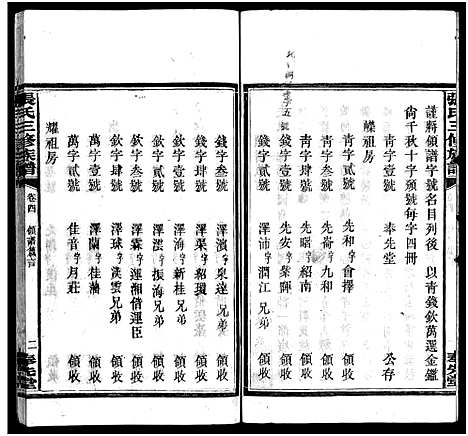 張氏三修族譜
謹將領譜字號名目列後 以青錢欽萬選金鑑
尚千秋十字頒號每字四冊
奉先堂 公存
禮祖房
青字壹號 先和字會擇 領收
青字貳號 先喬字九和 領收
青字叁號 先曙字紹南 領收
青字肆號 先安字葉暉 領收
錢字壹號 澤沛字潤江兄弟 領收
奉先堂
錢字叁號 澤濱字泉達 領收
錢字肆號 澤渠字紹璦 領收
欽字壹號 澤海字新桂兄弟 領收
欽字貳號 澤滋字振海兄弟 領收
欽字叁號 澤霖字運湘偕運臣 領收
欽字肆號 澤球字漢雲兄弟 領收
萬字壹號 澤蘭字佳藩 領收
萬字貳號 佳音字月莊 領收
耀祖房
張氏三修族譜 卷四 領譜篇言 二 奉先堂